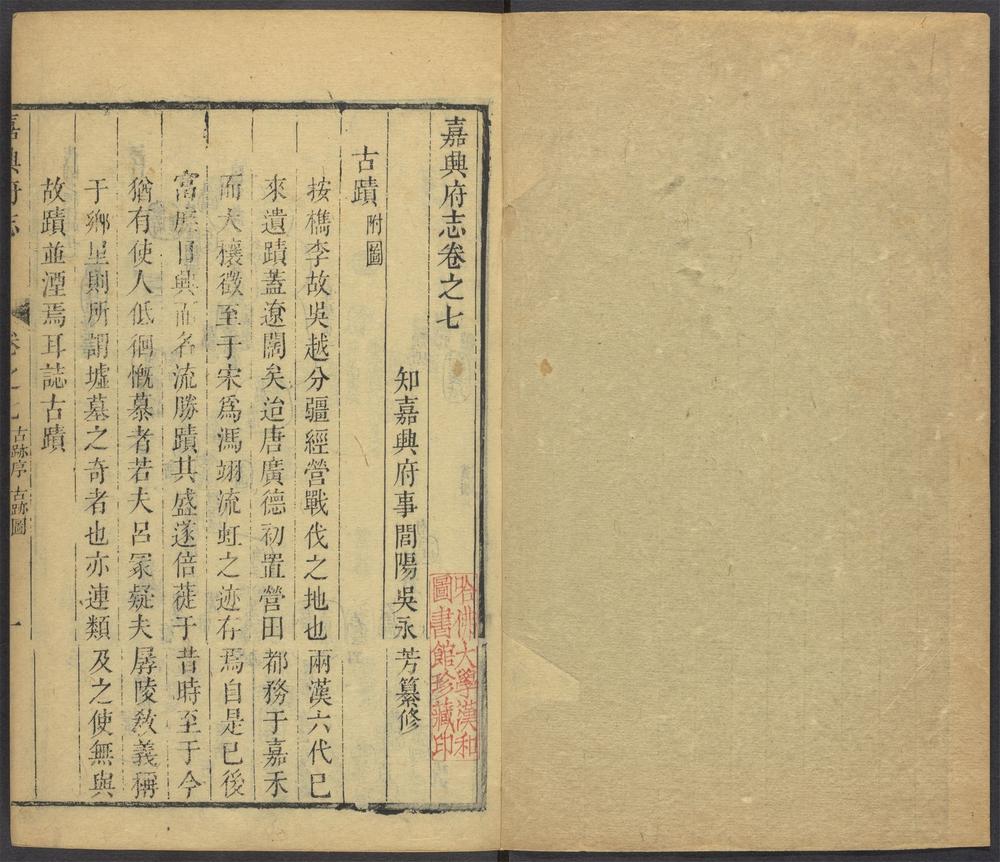 嘉興府志卷之七
知嘉興府事閭陽吳永芳纂修
哈佛大學漢和
圖書館珍藏印
古蹟附圖
按檇李故吳越分疆經營戰伐之地也兩漢六代已
來遺蹟蓋遼闊矣迨唐廣德初置營田都務于嘉禾
而大穰徵至于宋爲馮翊流虹之迹存焉自是已後
富庶日興而名流勝蹟其盛遂倍蓰于昔時至于今
猶有使人低徊慨慕者若夫呂冡疑夫孱陵敘義稱
于鄉里則所謂墟墓之奇者也亦連類及之使無與
故蹟並湮焉耳誌古蹟
嘉興府志 卷之七 古跡序 古跡圖 一